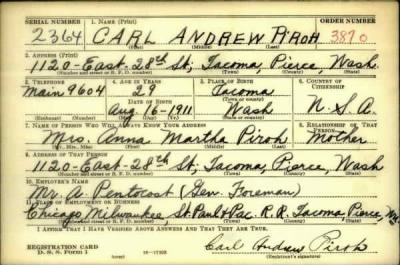 SERIAL NUMBER 1. NAME (Print) ORDER NUMBER
2364 CARL ANDREW PIROH 3870
(First) (Middle) (Last)
2. ADDRESS (Print)
1120-East-28th St; Tacoma, Pierce, Wash.
(Number and street or R. F. D. number) (Town) (County) (State)
3. TELEPHONE 4. AGE IN YEARS 5. PLACE OF BIRTH 6. COUNTRY OF CITIZENSHIP
Main 9604 29 Tacoma
DATE OF BIRTH (Town or county)
Aug 16-1911 Wash U.S.A.
(Exchange) (Number) (Mo.) (Day) (Yr.) (State or country)
7. NAME OF PERSON WHO WILL ALWAYS KNOW YOUR ADDRESS 8. RELATIONSHIP OF THAT PERSON
Mrs. Anna Martha Piroh Mother
(Mr., Mrs., Miss) (First) (Middle) (Last)
9. ADDRESS OF THAT PERSON
1120-East-28th St; Tacoma, Pierce, Wash
(Number and street or R. F. D. number) (Town) (County) (State)
10. EMPLOYER'S NAME
Mr. Pentocost (Gen. Foreman)
11. PLACE OF EMPLOYMENT OR BUSINESS
Chicago Milwaukee St. Paul & Pac. R.R. Tacoma, Pierce, Wn.
(Number and street or R. F. D. number) (Town) (County) (State)
I AFFIRM THAT I HAVE VERIFIED ABOVE ANSWERS AND THAT THEY ARE TRUE.
REGISTRATION CARD
D. S. S. Form 1 (over) 16-17105 Carl Andrew Piroh
(Registrant's signature)